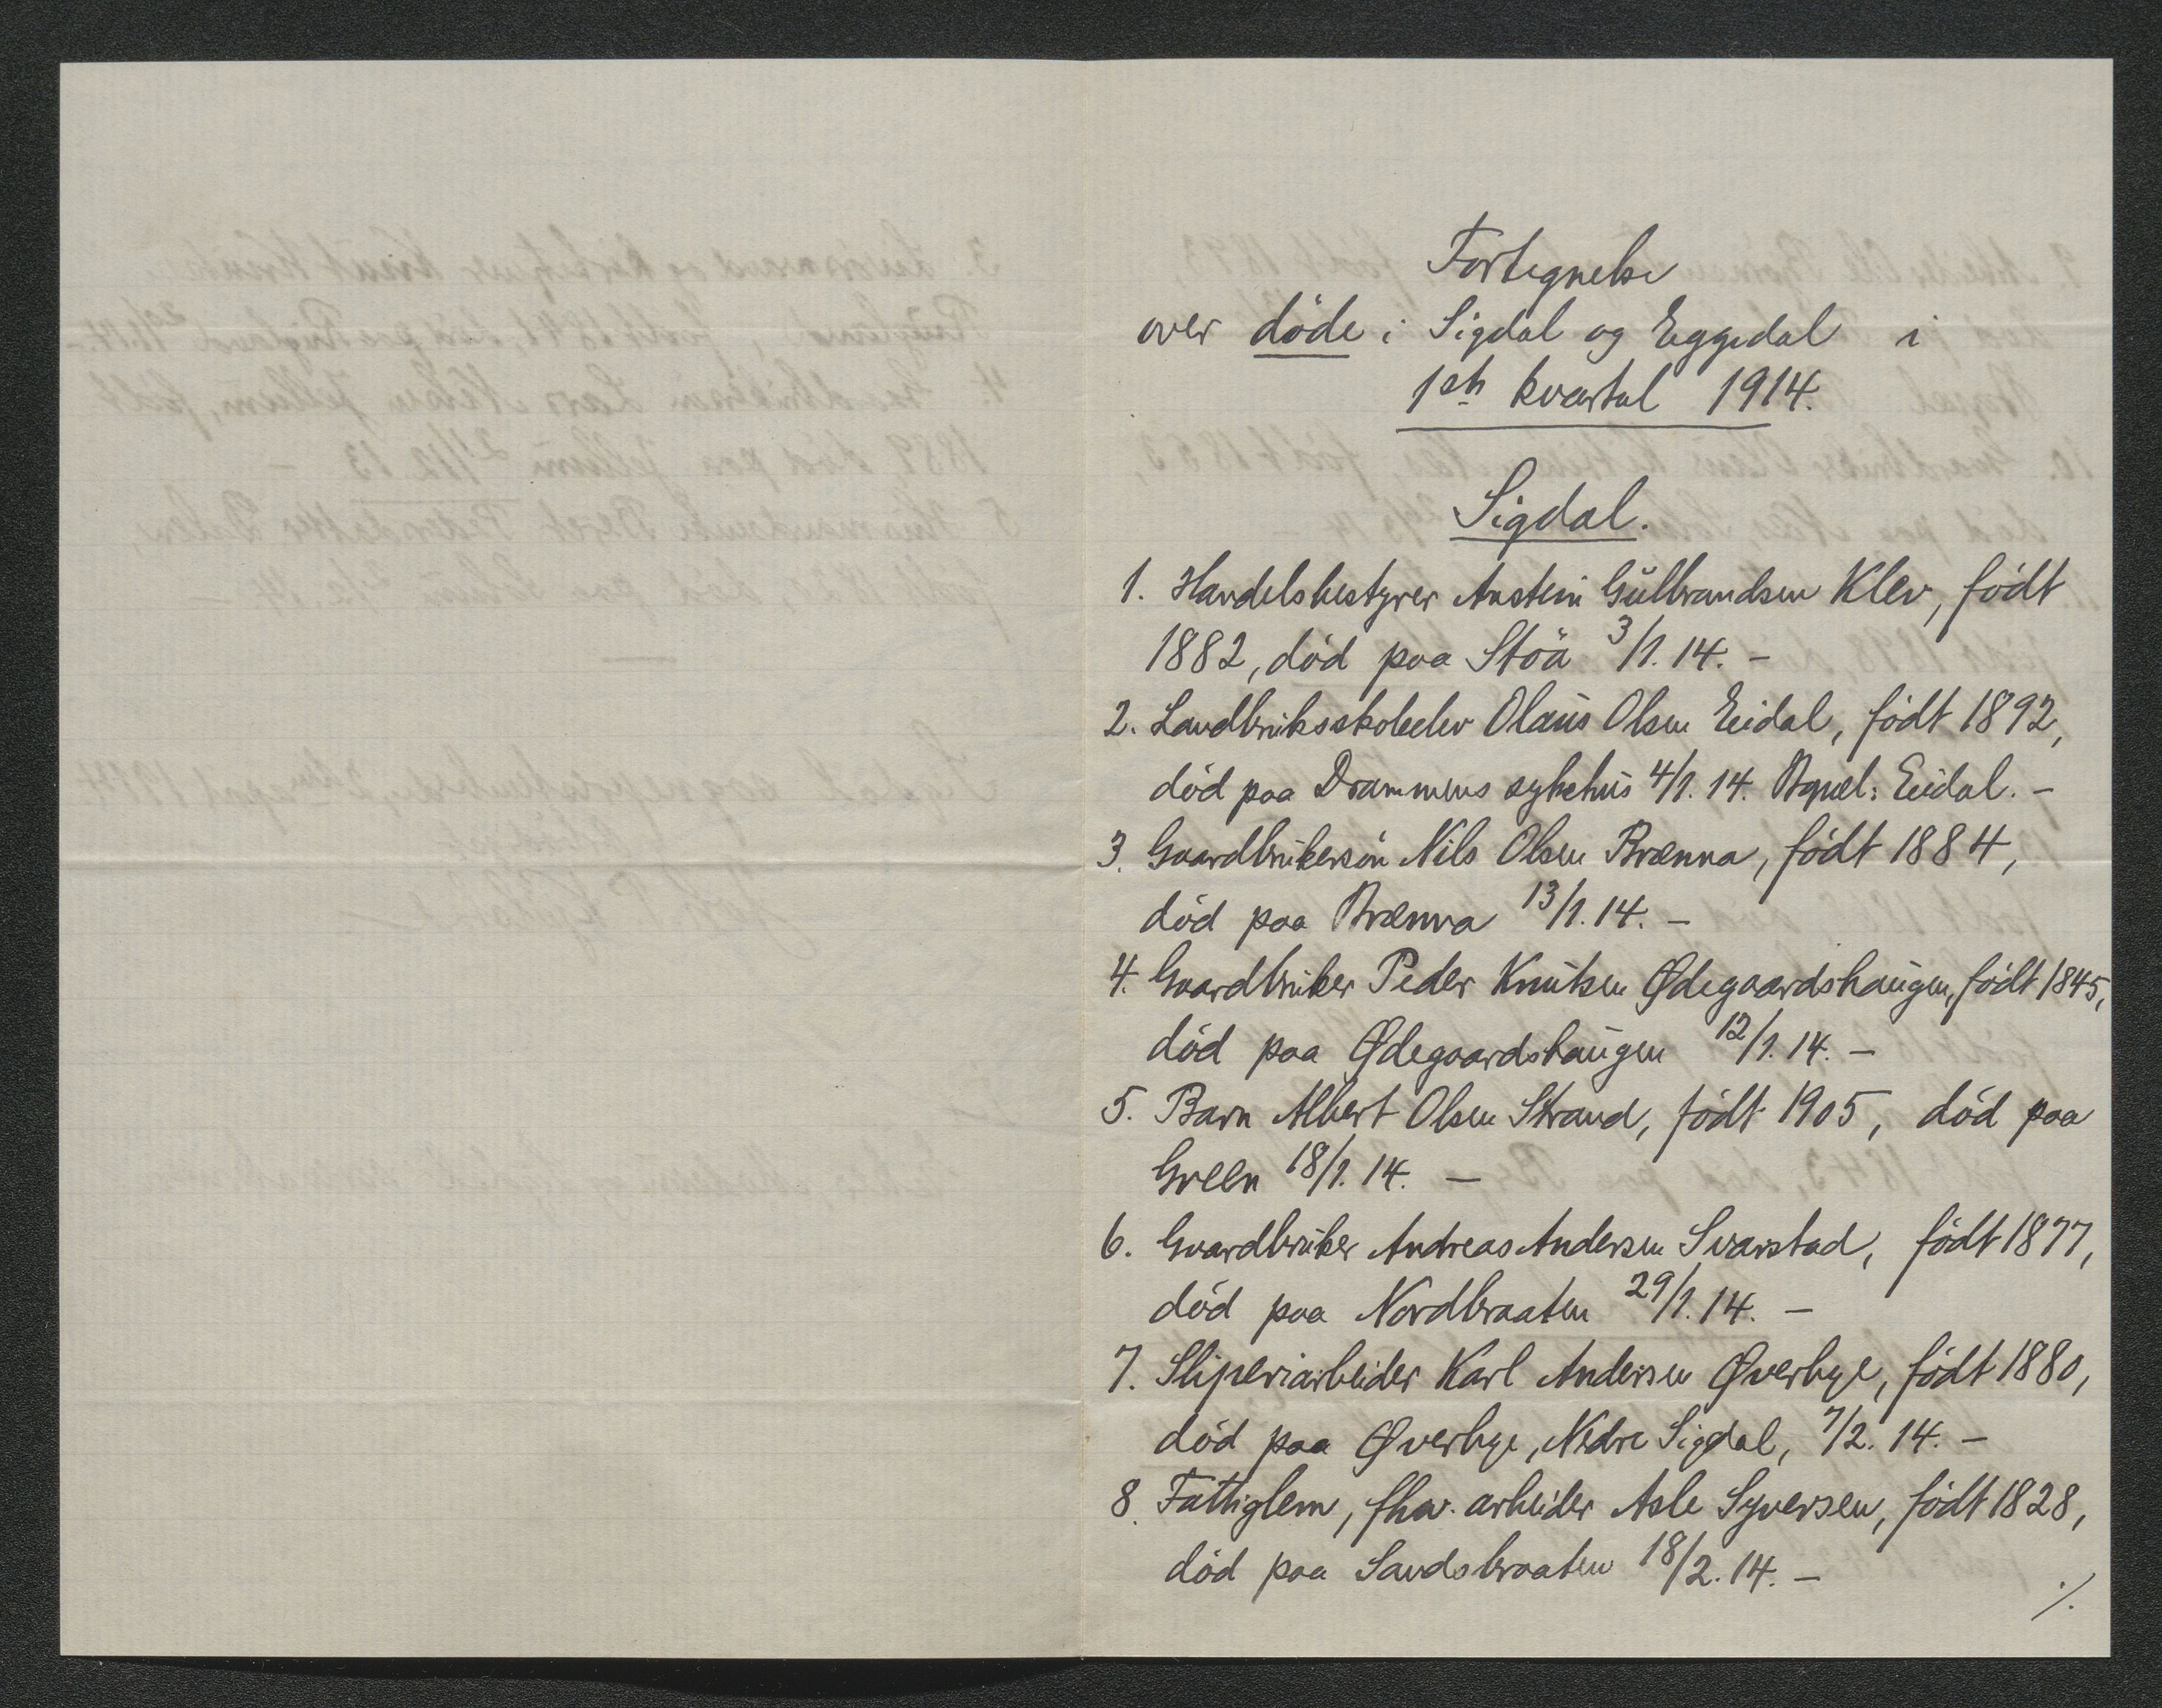 Fortegnelse
over døde i Sigdal og Eggedal i
1ste kvartal 1914.
Sigdal.
1. Handelsbestyrer Anstein Gulbrandsen Klev, født
1882, død paa Stöa 3/1. 14. -
2. Landbruksskoleelev Olaus Olsen Eidal, født 1892,
død paa Drammens sykehus 4/1. 14. Bopæl: Eidal. -
3. Gaardbrukersön Nils Olsen Brænna, født 1884,
død paa Brænna 13/1. 14. -
4. Gaardbruker Peder Knutsen Ødegaardshaugen, født 1845,
død paa Ødegaardshaugen 12/1. 14. -
5. Barn Albert Olsen Strand, født 1905, død paa
Green 18/1. 14. -
6. Gaardbruker Andreas Andersen Svarstad, født 1877,
død paa Nordbraaten 29/1. 14. -
7. Sliperiarbeider Karl Andersen Øverbye, født 1880,
død paa Øverbye, Nedre Sigdal, 7/2. 14. -
8. Fattiglem, fhv. arbeider Asle Syversen, født 1828,
død paa Sandsbraaten 18/2. 14. -
./.